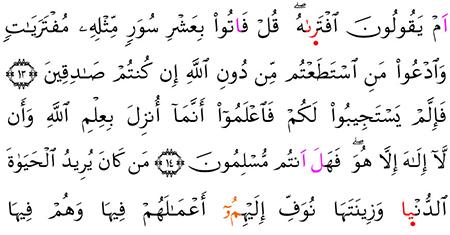 اَمْ يَقُولُونَ اَفْتَرٜىٰهُۖ قُلْ فَاتُواْ بِعَشْرِ سُوَرٖ مِّثْلِهِۦ مُفْتَرَيَٰتٖ
وَادْعُواْ مَنِ اِسْتَطَعْتُم مِّن دُونِ اِللَّهِ إِن كُنتُمْ صَٰدِقِينَ ۝١٣
فَإِلَّمْ يَسْتَجِيبُواْ لَكُمْ فَاعْلَمُوٓاْ أَنَّمَآ أُنزِلَ بِعِلْمِ اِللَّهِ وَأَن
لَّآ إِلَٰهَ إِلَّا هُوَۖ فَهَلَ اَنتُم مُّسْلِمُونَ ۝١٤ مَن كَانَ يُرِيدُ اُلْحَيَوٰةَ
اَلدُّنْيٜا وَزِينَتَهَا نُوَفِّ إِلَيْهِمُۥٓ أَعْمَٰلَهُمْ فِيهَا وَهُمْ فِيهَا